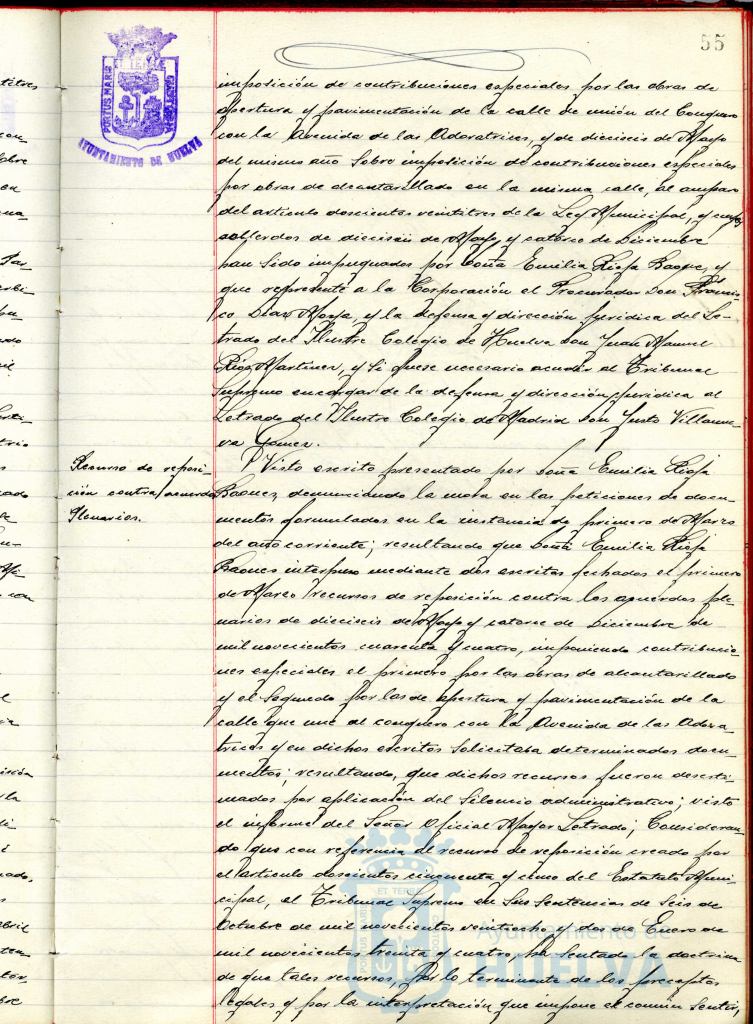 55
PORTUS MARIS
ET TERRAE
CUSTODIA
AYUNTAMIENTO DE HUELVA
imposición de contribuciones especiales por las obras de
apertura y pavimentación de la calle de unión del Conquero
con la Avenida de las Adoratrices, y de dieciseis de Mayo
del mismo año sobre imposición de contribuciones especiales
por obras de alcantarillado en la misma calle, al amparo
del articulo doscientos veintitres de la Ley Municipal, y cuyos
acuerdos de dieciseis de Mayo y catorce de Diciembre
han sido impugnados por Doña Emilia Rioja Baquez, y
que represente a la Corporación el Procurador Don Francis-
co Diaz Moya, y la defensa y dirección juridica del Le-
trado del Ilustre Colegio de Huelva Don Juan Manuel
Martinez, y si fuese necesario acudir al Tribunal
Supremo encargar de la defensa y dirección juridica al
Letrado del Ilustre Colegio de Madrid Don Justo Villanue-
va Gomez.
Recurso de reposi-
ción contra acuerdos
Plenarios.
Visto escrito presentado por Doña Emilia Rioja
denunciando la mora en las peticiones de docu-
mentos formulados en la instancia de primero de Marzo
del año corriente; resultando que Doña Emilia Rioja
interpuso mediante dos escritos fechados el primero
de Marzo recursos de reposición contra los acuerdos ple-
narios de dieciseis de Mayo y catorce de Diciembre de
mil novecientos cuarenta y cuatro, imponiendo contribucio-
nes especiales el primero por las obras de alcantarillado
y el segundo por las de apertura y pavimentación de la
calle que une al conquero con la Avenida de las Adora-
trices y en dichos escritos solicitaba determinados docu-
mentos; resultando, que dichos recursos fueron desesti-
mados por aplicación del silencio administrativo; visto
el informe del Señor Oficial Mayor Letrado; Consideran-
do que con referencia al recurso de reposición creado por
el articulo doscientos cincuenta y cinco del Estatuto Muni-
cipal, el Tribunal Supremo en sus Sentencias de Seis de
Octubre de mil novecientos veintiocho y dos de Enero de
mil novecientos treinta y cuatro, ha sentado la doctrina
de que tales recursos, por lo terminante de los preceptos
legales y por la interpretación que impone el común sentir,
Ayuntamiento de
HUELVA